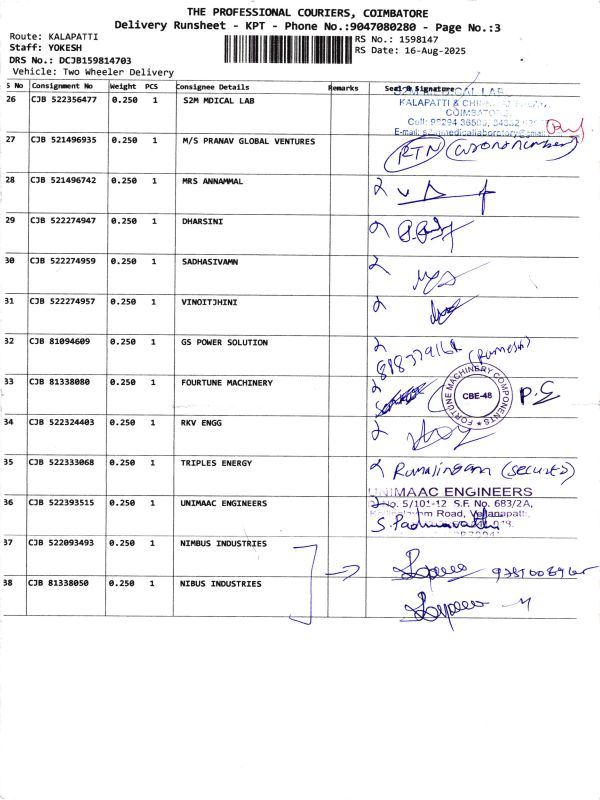 THE PROFESSIONAL COURIERS, COIMBATORE
Delivery Runsheet - KPT - Phone No.:9047080280 - Page No.:3
Route: KALAPATTI
RS No.: 1598147
Staff: YOKESH
RS Date: 16-Aug-2025
DRS No.: DCJB159814703
Vehicle: Two Wheeler Delivery
S No Consignment No Weight PCS Consignee Details Remarks Seal & Signature
26 CJB 522356477 0.250 1 S2M MDICAL LAB
S2M MEDICAL LAB
KALAPATTI &
COIMBATORE
27 CJB 521496935 0.250 1 M/S PRANAV GLOBAL VENTURES RTN (wrong number)
28 CJB 521496742 0.250 1 MRS ANNAMMAL
29 CJB 522274947 0.250 1 DHARSINI
30 CJB 522274959 0.250 1 SADHASIVAMN
31 CJB 522274957 0.250 1 VINOITJHINI
32 CJB 81094609 0.250 1 GS POWER SOLUTION
(Ramesh)
33 CJB 81338080 0.250 1 FOURTUNE MACHINERY
FORTUNE MACHINERY COMPONENTS
CBE-48
34 CJB 522324403 0.250 1 RKV ENGG
35 CJB 522333068 0.250 1 TRIPLES ENERGY Ramalingam (security)
36 CJB 522393515 0.250 1 UNIMAAC ENGINEERS
UNIMAAC ENGINEERS
No. 5/101-12 S.F. No. 683/2A,
Road, Vellanapatti,
S. Padmavathi
37 CJB 522093493 0.250 1 NIMBUS INDUSTRIES
38 CJB 81338050 0.250 1 NIBUS INDUSTRIES